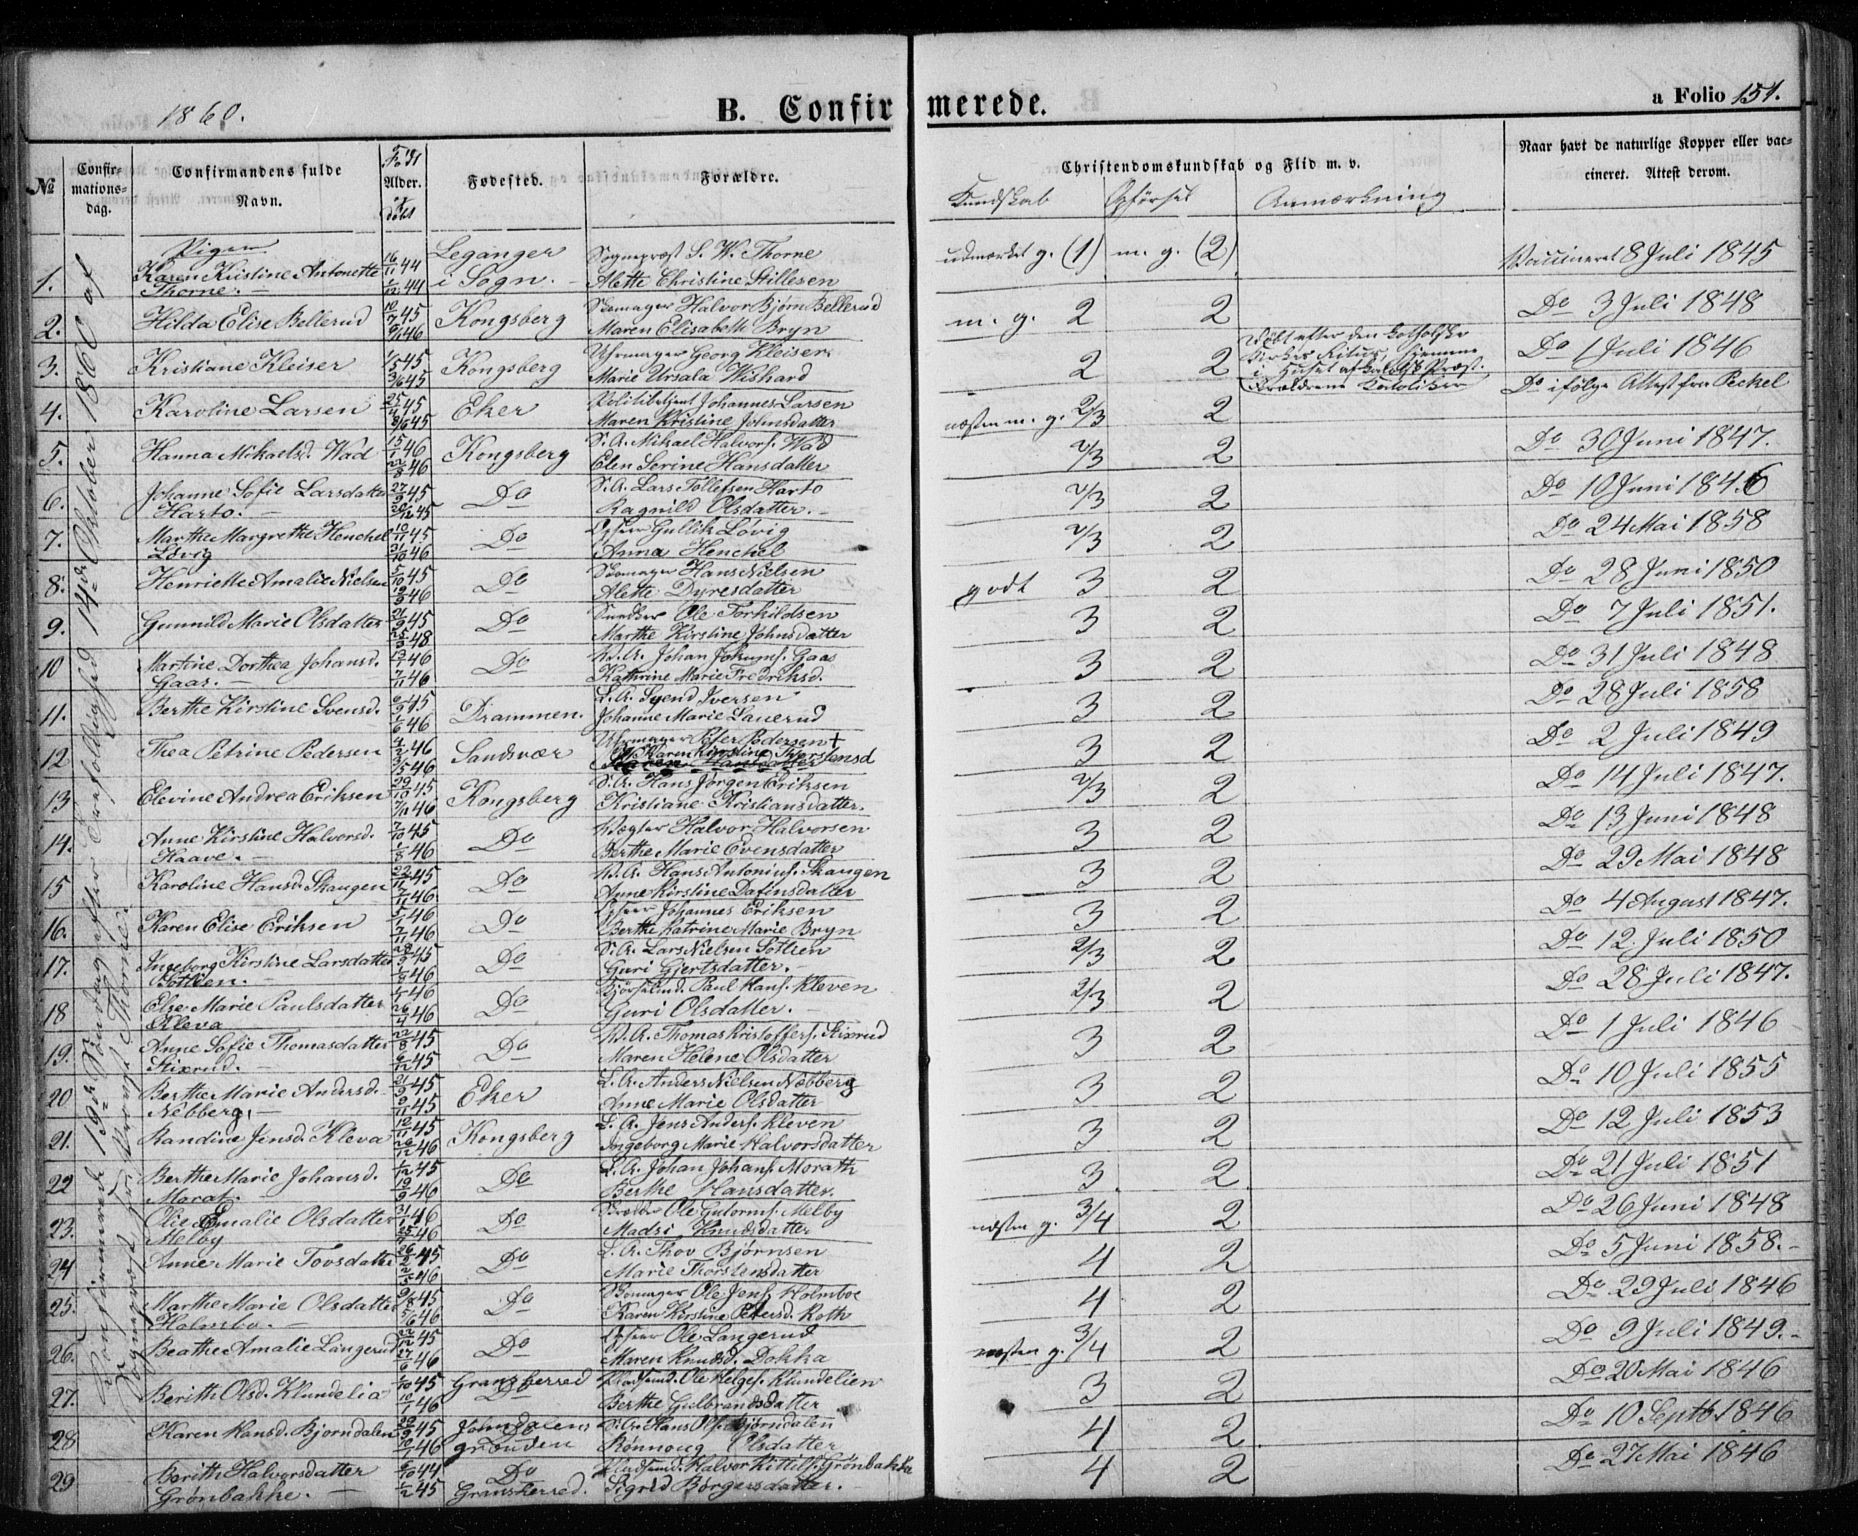 1860.
B. Confirmerede.
a Folio 151.
№ Confirmationsdag. Confirmandens fulde Navn. Alder. Fødested. Forældre. Christendomskundskab og Flid m. v. Naar havt de naturlige Kopper eller vaccineret. Attest derom.
Kundskab Opførsel Anmærkning
Konfirmerede 19de Søndag efter Trefoldighed 14de Oktober 1860 af
Sognepræst Thorne.
Piger
1. Karen Kristine Antonette Thorne. 16/11 44 Leganger i Sogn. Sognepræst S. W. Thorne Alette Christine Stillesen udmærket g. (1) m. g. (2) Vaccineret 8 Juli 1845
2. Hilda Elise Bellerud 45 46 Kongsberg Skomager Halvor Bjørn Bellerud Maren Elisabeth Bryn m. g. 2 2 Do 3 Juli 1848
3. Kristiane Kleiser 1/5 45 3/6 45 Kongsberg Uhrmager Georg Kleiser Marie Ursala Wishard 2 2 Døbt efter den katholske Kirkes Ritus, hjemme i Huset af katolsk Præst. Forældrene Katoliker Do 1 Juli 1846
4. Karoline Larsen 25/4 45 8/6 45 Eker Politibetjent Johannes Larsen Maren Kristine Johnsdatter næsten m. g. 2/3 2 Do ifølge Attest fra Peckel
5. Hanna Mikaelsd. Wad 15/1 46 46 Kongsberg S. A. Mikael Halvors. Wad Elen Serine Hansdatter 2/3 2 Do 30 Juni 1847.
6. Johanne Sofie Larsdatter Harto. 27/9 45 45 Do S. A. Lars Tollefsen Harto Ragnild Olsdatter. 2/3 2 Do 10 Juni 1846
7. Marthe Margrethe Henchel Løvig 10/11 45 46 Do Gullik Løvig Anna Henchel 2/3 2 Do 24 Mai 1858
8. Henriette Amalie Nielsen 5/10 45 46 Do Skomager Hans Nielsen Alette Dyresdatter godt 3 2 Do 28 Juni 1850
9. Gunnild Marie Olsdatter 21/9 45 25/3 48 Do Snedker Ole Torkildsen Marthe Kirstine Johnsdatter 3 2 Do 7 Juli 1851.
10 Martine Dorthea Johansd. Gaas. 13/1 46 46 Do Johan Jokums. Gaas Kathrine Marie Fredriksd. 3 2 Do 31 Juli 1848
11. Berthe Kirstine Svensd. 45 46 Drammen. L. A. Svend Iversen Johanne Marie Lauerud 3 2 Do 28 Juli 1858
12 Thea Petrine Pedersen 4/2 46 46 Sandsvær Uhrmager Peter Pedersen + Karen Kirstine Thorstensd 3 2 Do 2 Juli 1849
13 Elevine Andrea Eriksen 29/10 45 46 Kongsberg S. A. Hans Jørgen Eriksen Kristiane Kristiansdatter. 2/3 2 Do 14 Juli 1847.
14. Anne Kirstine Halvorsd. Haave. 7/10 45 46 Do Vægter Halvor Halvorsen Berthe Marie Evensdatter 3 2 Do 13 Juni 1848
15 Karoline Hansd. Skaugen 22/11 45 46. Do Hans Antonius. Skaugen Anne Kirstine Dafinsdatter 3 2 Do 29 Mai 1848
16. Karen Elise Eriksen 46 46 Do Johannes Eriksen Berthe Katrine Marie Bryn 3 2 Do 4 August 1847.
17. Ingeborg Kirstine Larsdatter Sotlien. 28/9 45 46 Do S. A. Lars Nielsen Sotlien Guri Gjertsdatter. 2/3 2 Do 12 Juli 1850
18 Else Marie Paulsdatter Kleva 46 26/4 46 Do Paul Hans. Kleven Guri Olsdatter. 2/3 2 Do 28 Juli 1847.
19. Anne Sofie Thomasdatter Stixrud. 22/8 45 45 Do Thomas Kristoffers. Stixrud Maren Helene Olsdatter 3 2 Do 1 Juli 1846
20 Berthe Marie Andersd. Nebberg. 45 45 Eker L. A. Anders Nielsen Nebberg Anne Marie Olsdatter 3 2 Do 10 Juli 1855
21. Randine Jensd. Kleva 12/11 45 46 Kongsberg L. A. Jens Anders. Kleven Ingeborg Marie Halvorsdatter 3 2 Do 12 Juli 1853
22 Berthe Marie Johansd. Morat. 45 46 Do L. A. Johan Johans. Morath Berthe Hansdatter. 3 2 Do 21 Juli 1851
23. Olie Emalie Olsdatter Melby 31/1 46 46 Do Ole Gutorms. Melby Madsi Knudsdatter næsten g. 3/4 2 Do 26 Juni 1848
24 Anne Marie Tovsdatter 45 46 Do L. A. Thov Bjørnsen Marie Thorstensdatter 4 2 Do 5 Juni 1858.
25. Marthe Marie Olsdatter Holmbo. 45 46 Do Skomager Ole Jens. Holmboe Karen Kirstine Petersd. Roth 4 2 Do 29 Juli 1846
26. Beathe Amalie Langerud 22/12 45 46 Do Ole Langerud Maren Knudsd. Dokka næsten g. 3/4 2 Do 9 Juli 1849.
27. Berith Olsd. Klundelia 45 46 Granshered Do Pladsmd. Ole Helges. Klundelien Berthe Gulbrandsdatter 3 2 Do 20 Mai 1846
28 Karen Hansd. Bjørndalen 45 46 Johnsdalens grunden S. A. Hans Ols. Bjørndalen Rønnoug Olsdatter 4 2 Do 10 Septb. 1846
29 Berith Halvorsdatter Grønbakke. 44 45 Do Gransherred. Pladsmd. Halvor Kittils. Grønbakke Sigrid Børgersdatter. 4 2 Do 27 Mai 1846